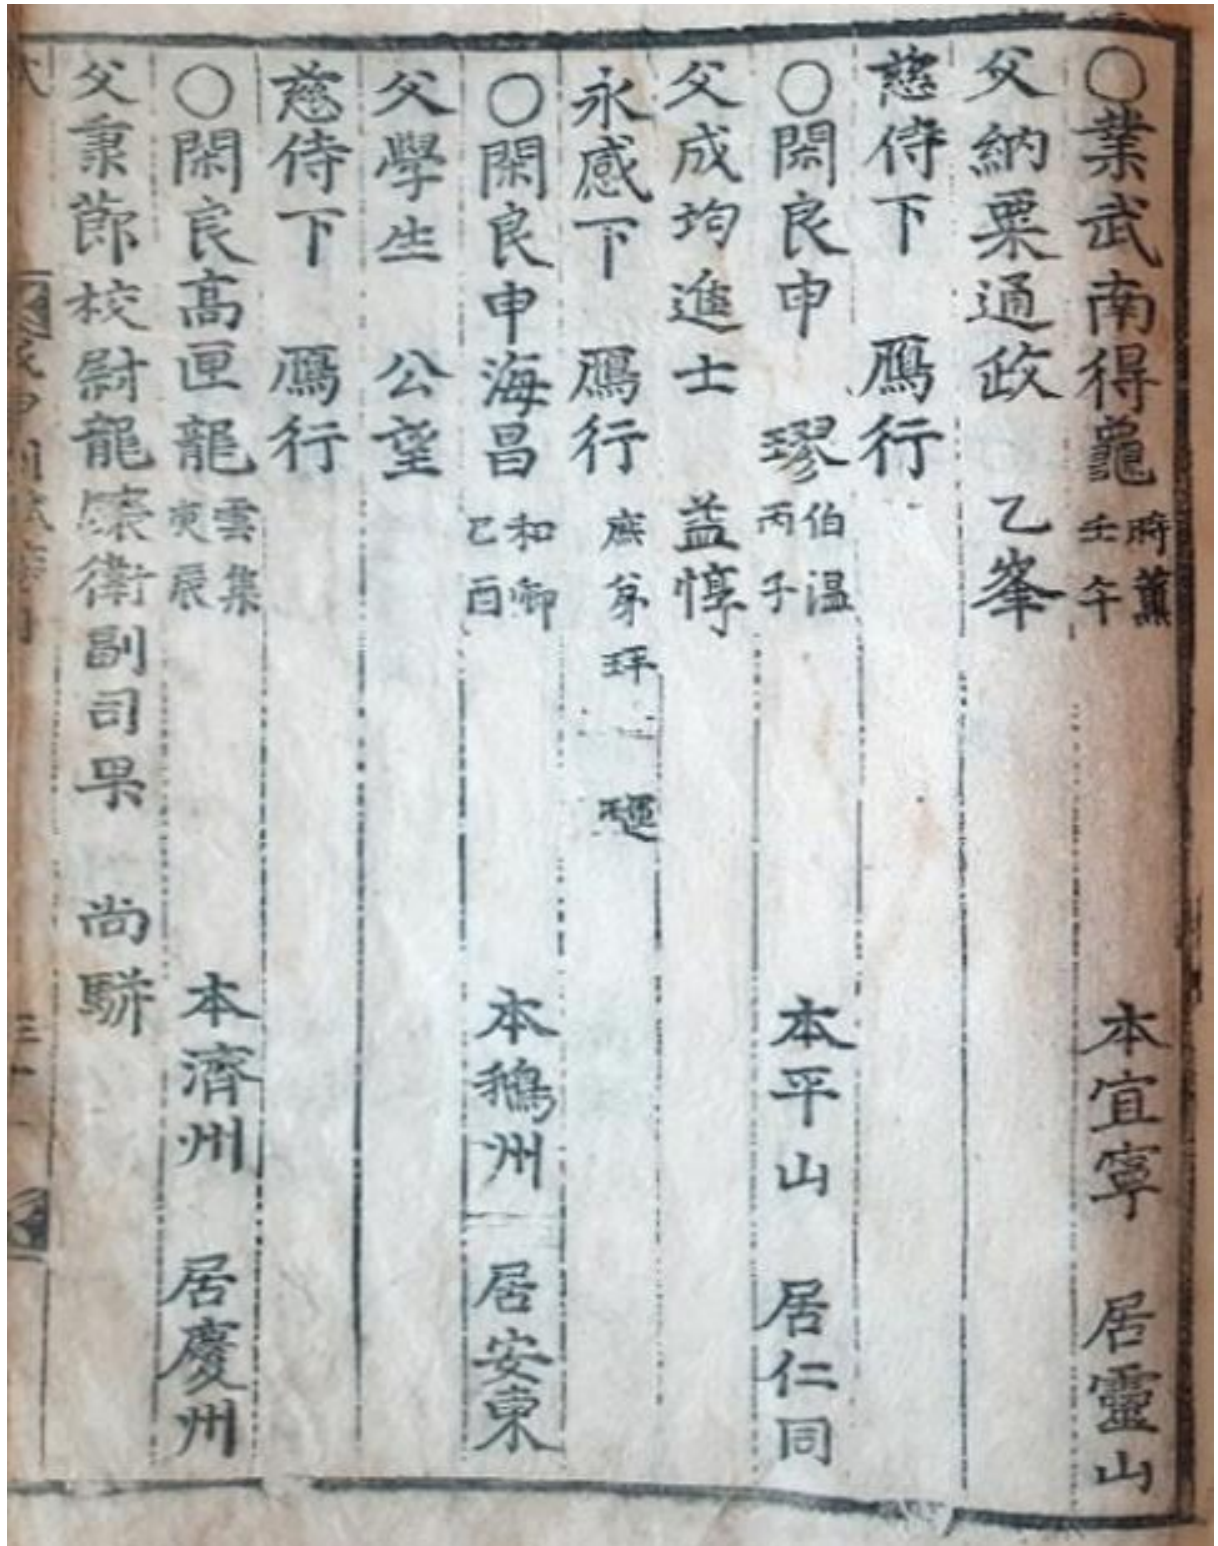 ○業武南得龜 時薰 壬午 本宜寧 居靈山
父納粟通政 乙峯
慈侍下 鴈行
○閑良申 璆 伯温 丙子 本平山 居仁同
父成均進士 益惇
永感下 鴈行 庶弟玶
○閑良申海昌 和卿 己酉 本鵝州 居安東
父學生 公望
慈侍下 鴈行
○閑良高匣龍 雲集 庚辰 本濟州 居慶州
父秉節校尉龍驤衛副司果 尚駢